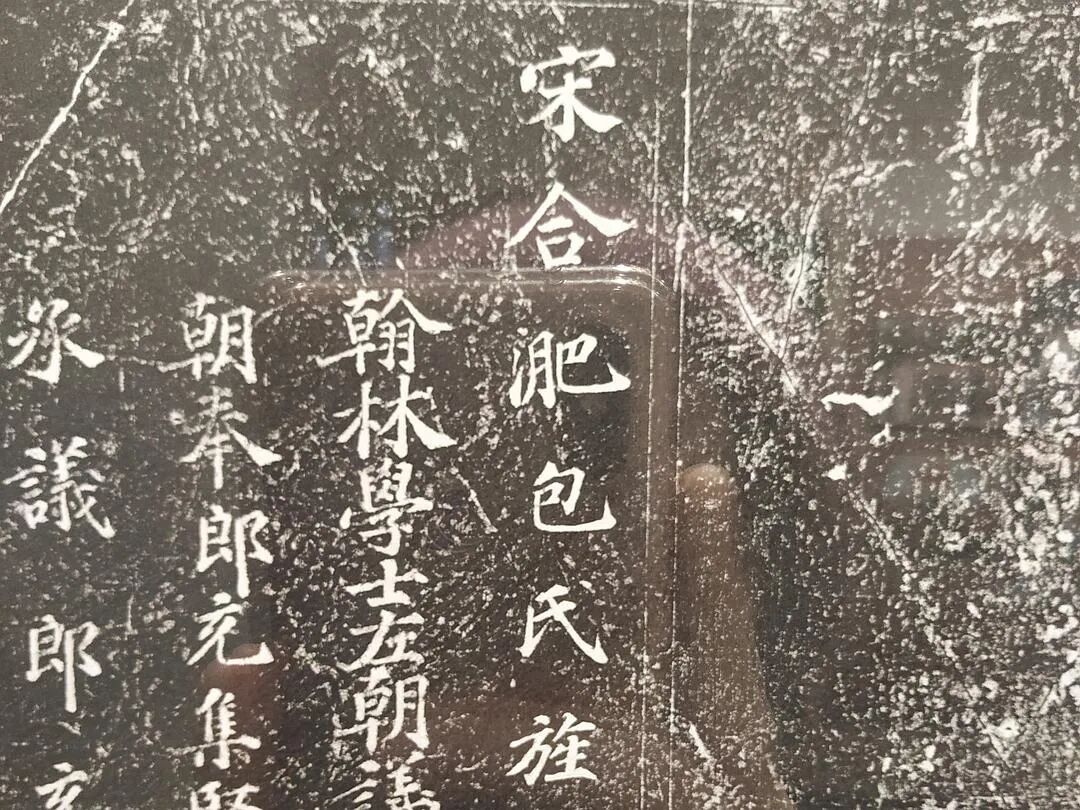 宋合淝包氏旌
翰林學士左朝議
朝奉郎充集賢
承議郎充